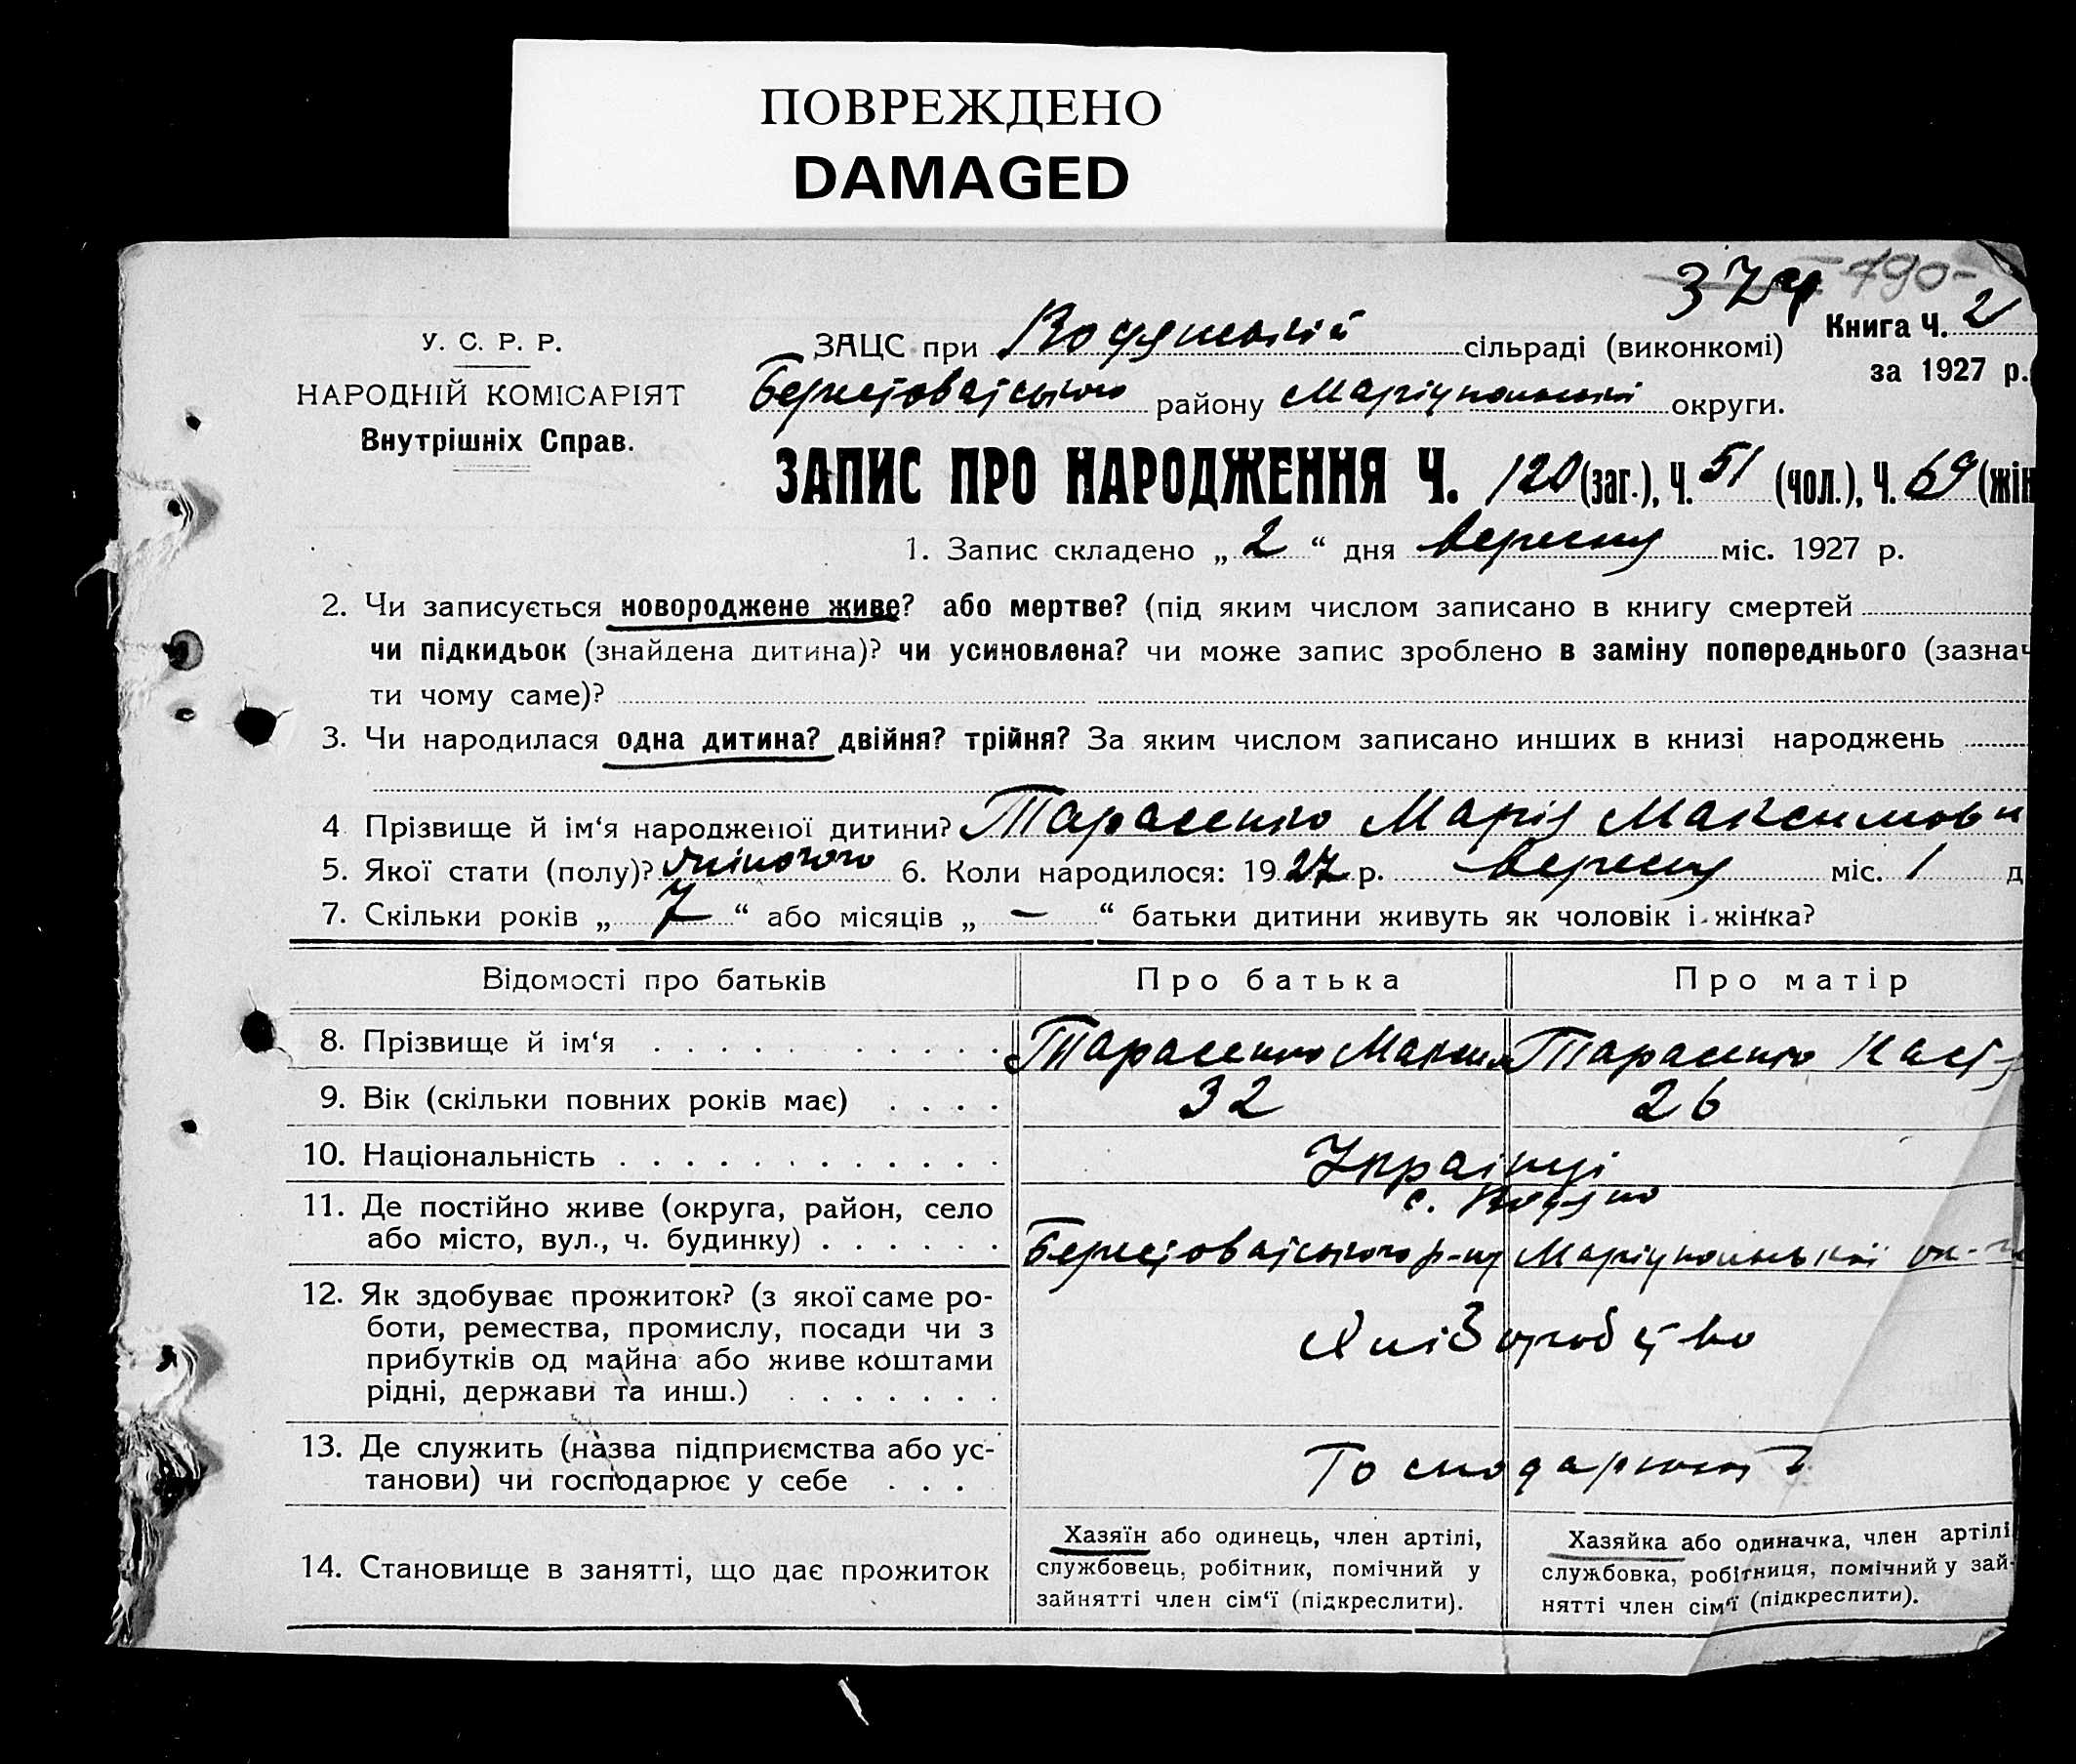 ПОВРЕЖДЕНО
DAMAGED
-790-
Книга Ч. 2
за 1927 р.
У. С. Р. Р.
НАРОДНІЙ КОМІСАРІЯТ
Внутрішніх Справ.
ЗАЦС при Водянській сільраді (виконкомі)
району Маріупольської округи.
ЗАПИС ПРО НАРОДЖЕННЯ Ч. 120 (заг.), Ч. 51 (чол.), Ч. 69 (жін
1. Запис складено „ 2 “ дня вересня міс. 1927 р.
2. Чи записується новороджене живе? або мертве? (під яким числом записано в книгу смертей
чи підкидьок (знайдена дитина)? чи усиновлена? чи може запис зроблено в заміну попереднього (зазнач
ти чому саме)?
3. Чи народилася одна дитина? двійня? трійня? За яким числом записано инших в книзі народжень
4 Прізвище й ім‘я народженої дитини? Тарасенко Марія Максимовн
5. Якої стати (полу)? жіночого 6. Коли народилося: 1927 р. вересня міс. 1 д
7. Скільки років „ 7 “ або місяців „ — “ батьки дитини живуть як чоловік і жінка?
Відомості про батьків Про батька Про матір
8. Прізвище й ім‘я . . . . . . . . . . . . Тарасенко Максим Тарасенко Наст
9. Вік (скільки повних років має) . . . . 32 26
10. Національність . . . . . . . . . . . . . Українці
11. Де постійно живе (округа, район, село с. Водяно
або місто, вул., ч. будинку) . . . . . . р-ну Маріупольської ок-
12. Як здобуває прожиток? (з якої саме ро-
боти, ремества, промислу, посади чи з
прибутків од майна або живе коштами
рідні, держави та инш.) . . . . . . .
13. Де служить (назва підприємства або ус-
танови) чи господарює у себе . . .
14. Становище в занятті, що дає прожиток
Хазяїн або одинець, член артілі,
службовець, робітник, помічний у
зайнятті член сім‘ї (підкреслити).
Хазяйка або одиначка, член артілі
службовка, робітниця, помічний у зай-
нятті член сім‘ї (підкреслити).